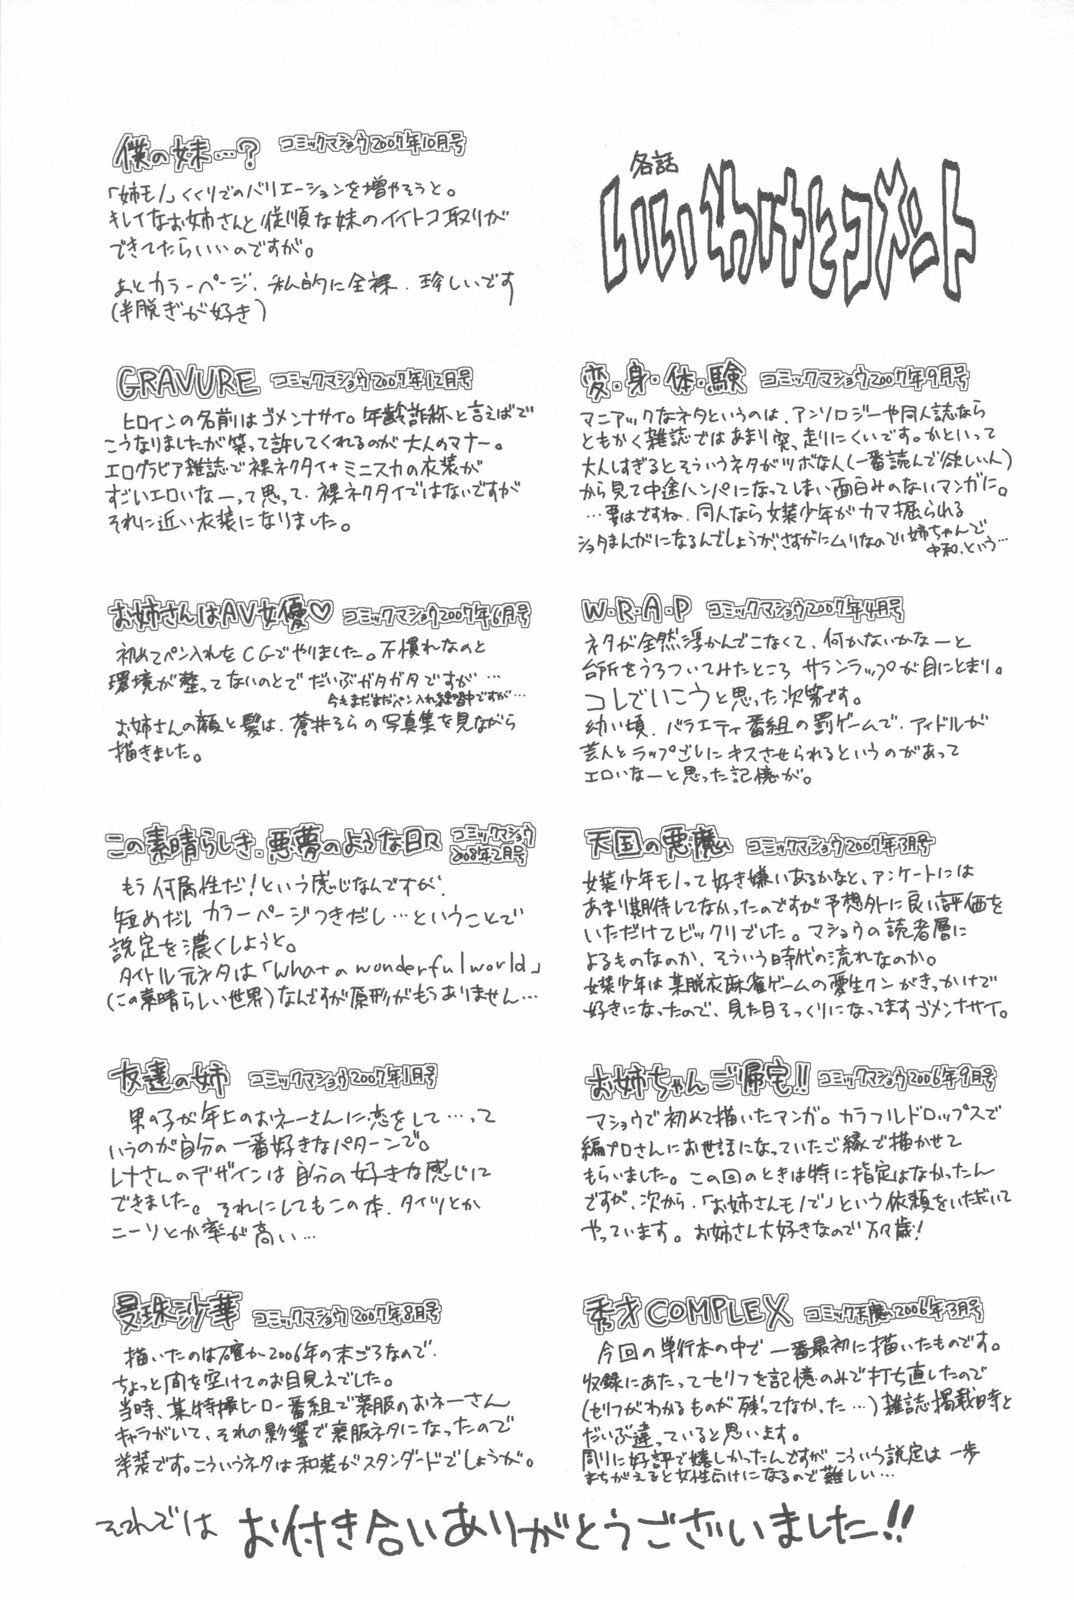 各話
いいわけとコメント
変・身・体・験 コミックマショウ2007年9月号
マニアックなネタというのは、アンソロジーや同人誌なら
ともかく雑誌ではあまり突っ走りにくいです。かといって
大人しすぎるとそういうネタがツボな人(一番読んで欲しい人)
から見て中途ハンパになってしまい面白みのないマンガに。
…要はですね、同人なら女装少年がカマ掘られる
ショタまんがになるんでしょうが、さすがにムリなのでい姉ちゃんで
中和、という…
W・R・A・P コミックマショウ2007年4月号
ネタが全然浮かんでこなくて、何かないかなーと
台所をうろついてみたところ サランラップが目にとまり。
コレでいこうと思った次第です。
幼い頃、バラエティ番組の罰ゲームで、アイドルが
芸人とラップごしにキスさせられるというのがあって
エロいなーと思った記憶が。
天国の悪魔 コミックマショウ2007年3月号
女装少年モノって好き嫌いあるかなと、アンケートには
あまり期待してなかったのですが予想外に良い評価を
いただけてビックリでした。マショウの読者層に
よるものなのか、そういう時代の流れなのか。
女装少年は某脱衣麻雀ゲームの愛生クンがきっかけで
好きになったので、見た目そっくりになってますゴメンナサイ。
お姉ちゃんご帰宅!! コミックマショウ2006年9月号
マショウで初めて描いたマンガ。カラフルドロップスで
編プロさんにお世話になっていたご縁で描かせて
もらいました。この回のときは特に指定はなかったん
ですが、次から、「お姉さんモノで」という依頼をいただいて
やっています。お姉さん大好きなので万歳!
秀才COMPLEX コミック天魔2006年3月号
今回の単行本の中で一番最初に描いたものです。
収録にあたってセリフを記憶のみで打ち直したので
(セリフがわかるものが残ってなかった…)雑誌掲載時と
だいぶ違っていると思います。
周りに好評で嬉しかったんですが、こういう設定は一歩
まちがえると女性向けになるので難しい…
僕の妹…? コミックマショウ2007年10月号
「姉モノ」くくりでのバリエーションを増やそうと。
キレイなお姉さんと従順な妹のイイトコ取りが
できてたらいいのですが。
あとカラーページ、私的に全裸、珍しいです
(半脱ぎが好き)
GRAVURE コミックマショウ2007年12月号
ヒロインの名前はゴメンナサイ。年齢詐称と言えばで
こうなりましたが笑って許してくれるのが大人のマナ〜。
エログラビア雑誌で裸ネクタイ+ミニスカの衣装が
すごいエロいなーって思って、裸ネクタイではないですが
それに近い衣装になりました。
お姉さんはAV女優♡ コミックマショウ2007年6月号
初めてペン入れをCGでやりました。不慣れなのと
環境が整ってないのとでだいぶガタガタですが…
今もまだまだペン入れ練習中ですが…
お姉さんの顔と髪は、蒼井そらの写真集を見ながら
描きました。
この素晴らしき、悪夢のような日々 コミックマショウ
2008年2月号
もう何属性だ!という感じなんですが、
短めだしカラーページつきだし…ということで
設定を濃くしようと。
タイトル元ネタは「What a wonderful world」
(この素晴らしい世界)なんですが原形がもうありません…
友達の姉 コミックマショウ2007年1月号
男の子が年上のおネーさんに恋をして…って
いうのが自分の一番好きなパターンで。
レナさんのデザインは自分の好きな感じに
できました。それにしてもこの本、タイツとか
ニーソとか率が高い…
曼珠沙華 コミックマショウ2007年8月号
描いたのは確か2006年の末ごろなので、
ちょっと間を空けてのお目見えでした。
当時、某特撮ヒーロー番組で喪服のおネーさん
キャラがいて、それの影響で喪服ネタになったので
洋装です。こういうネタは和装がスタンダードでしょうが。
それでは お付き合いありがとうございました!!